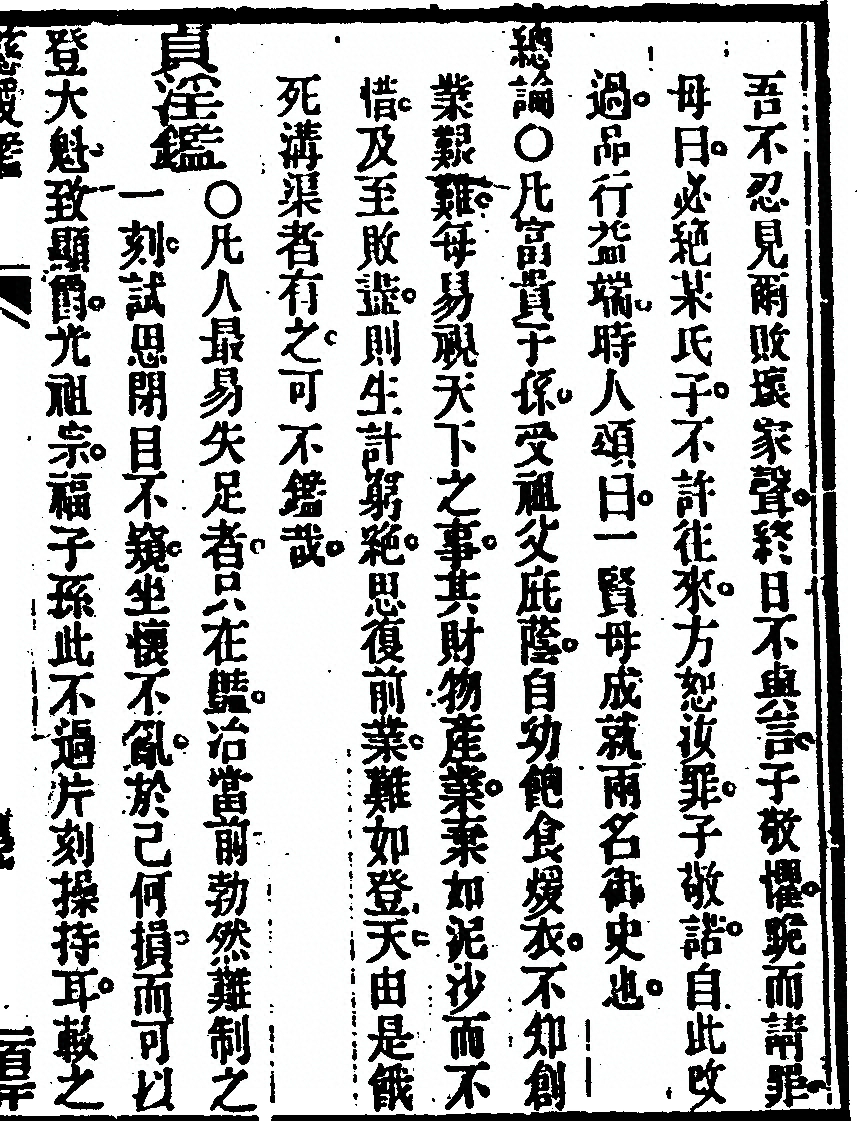 吾不忍見爾敗壞家聲終日不與言子敬懼跪而請罪
母曰必絕某氏子不許往來方恕汝罪子敬諾自此改
過品行益端時人頌曰一賢母成就兩名御史也
總論○凡富貴子孫受祖父庇蔭自幼飽食煖衣不知創
業艱難每易視天下之事其財物產業棄如泥沙而不
惜及至敗盡則生計窮絕思復前業難如登天由是餓
死溝渠者有之可不鑑哉
貞淫鑑
○凡人最易失足者只在豔冶當前勃然難制之
一刻試思閉目不窺坐懷不亂於己何損而可以
登大魁致顯爵光祖宗福子孫此不過片刻操持耳較之